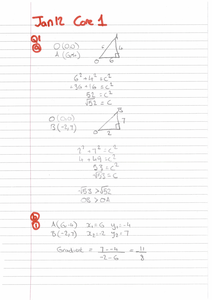 Jan 12 Core 1
Q1
a
O (0,0)
A (6,-4)
A
4
O
6
6² + 4² = c²
36 + 16 = c²
52 = c²
√52 = c
O (0,0)
B (-2,7)
B
7
O
2
2² + 7² = c²
4 + 49 = c²
53 = c²
√53 = c
√53 > √52
OB > OA
b
i
A(6,-4) x₁=6 y₁=-4
B(-2,7) x₂=-2 y₂=7
Gradient = 7--4 = 11
-2-6 8